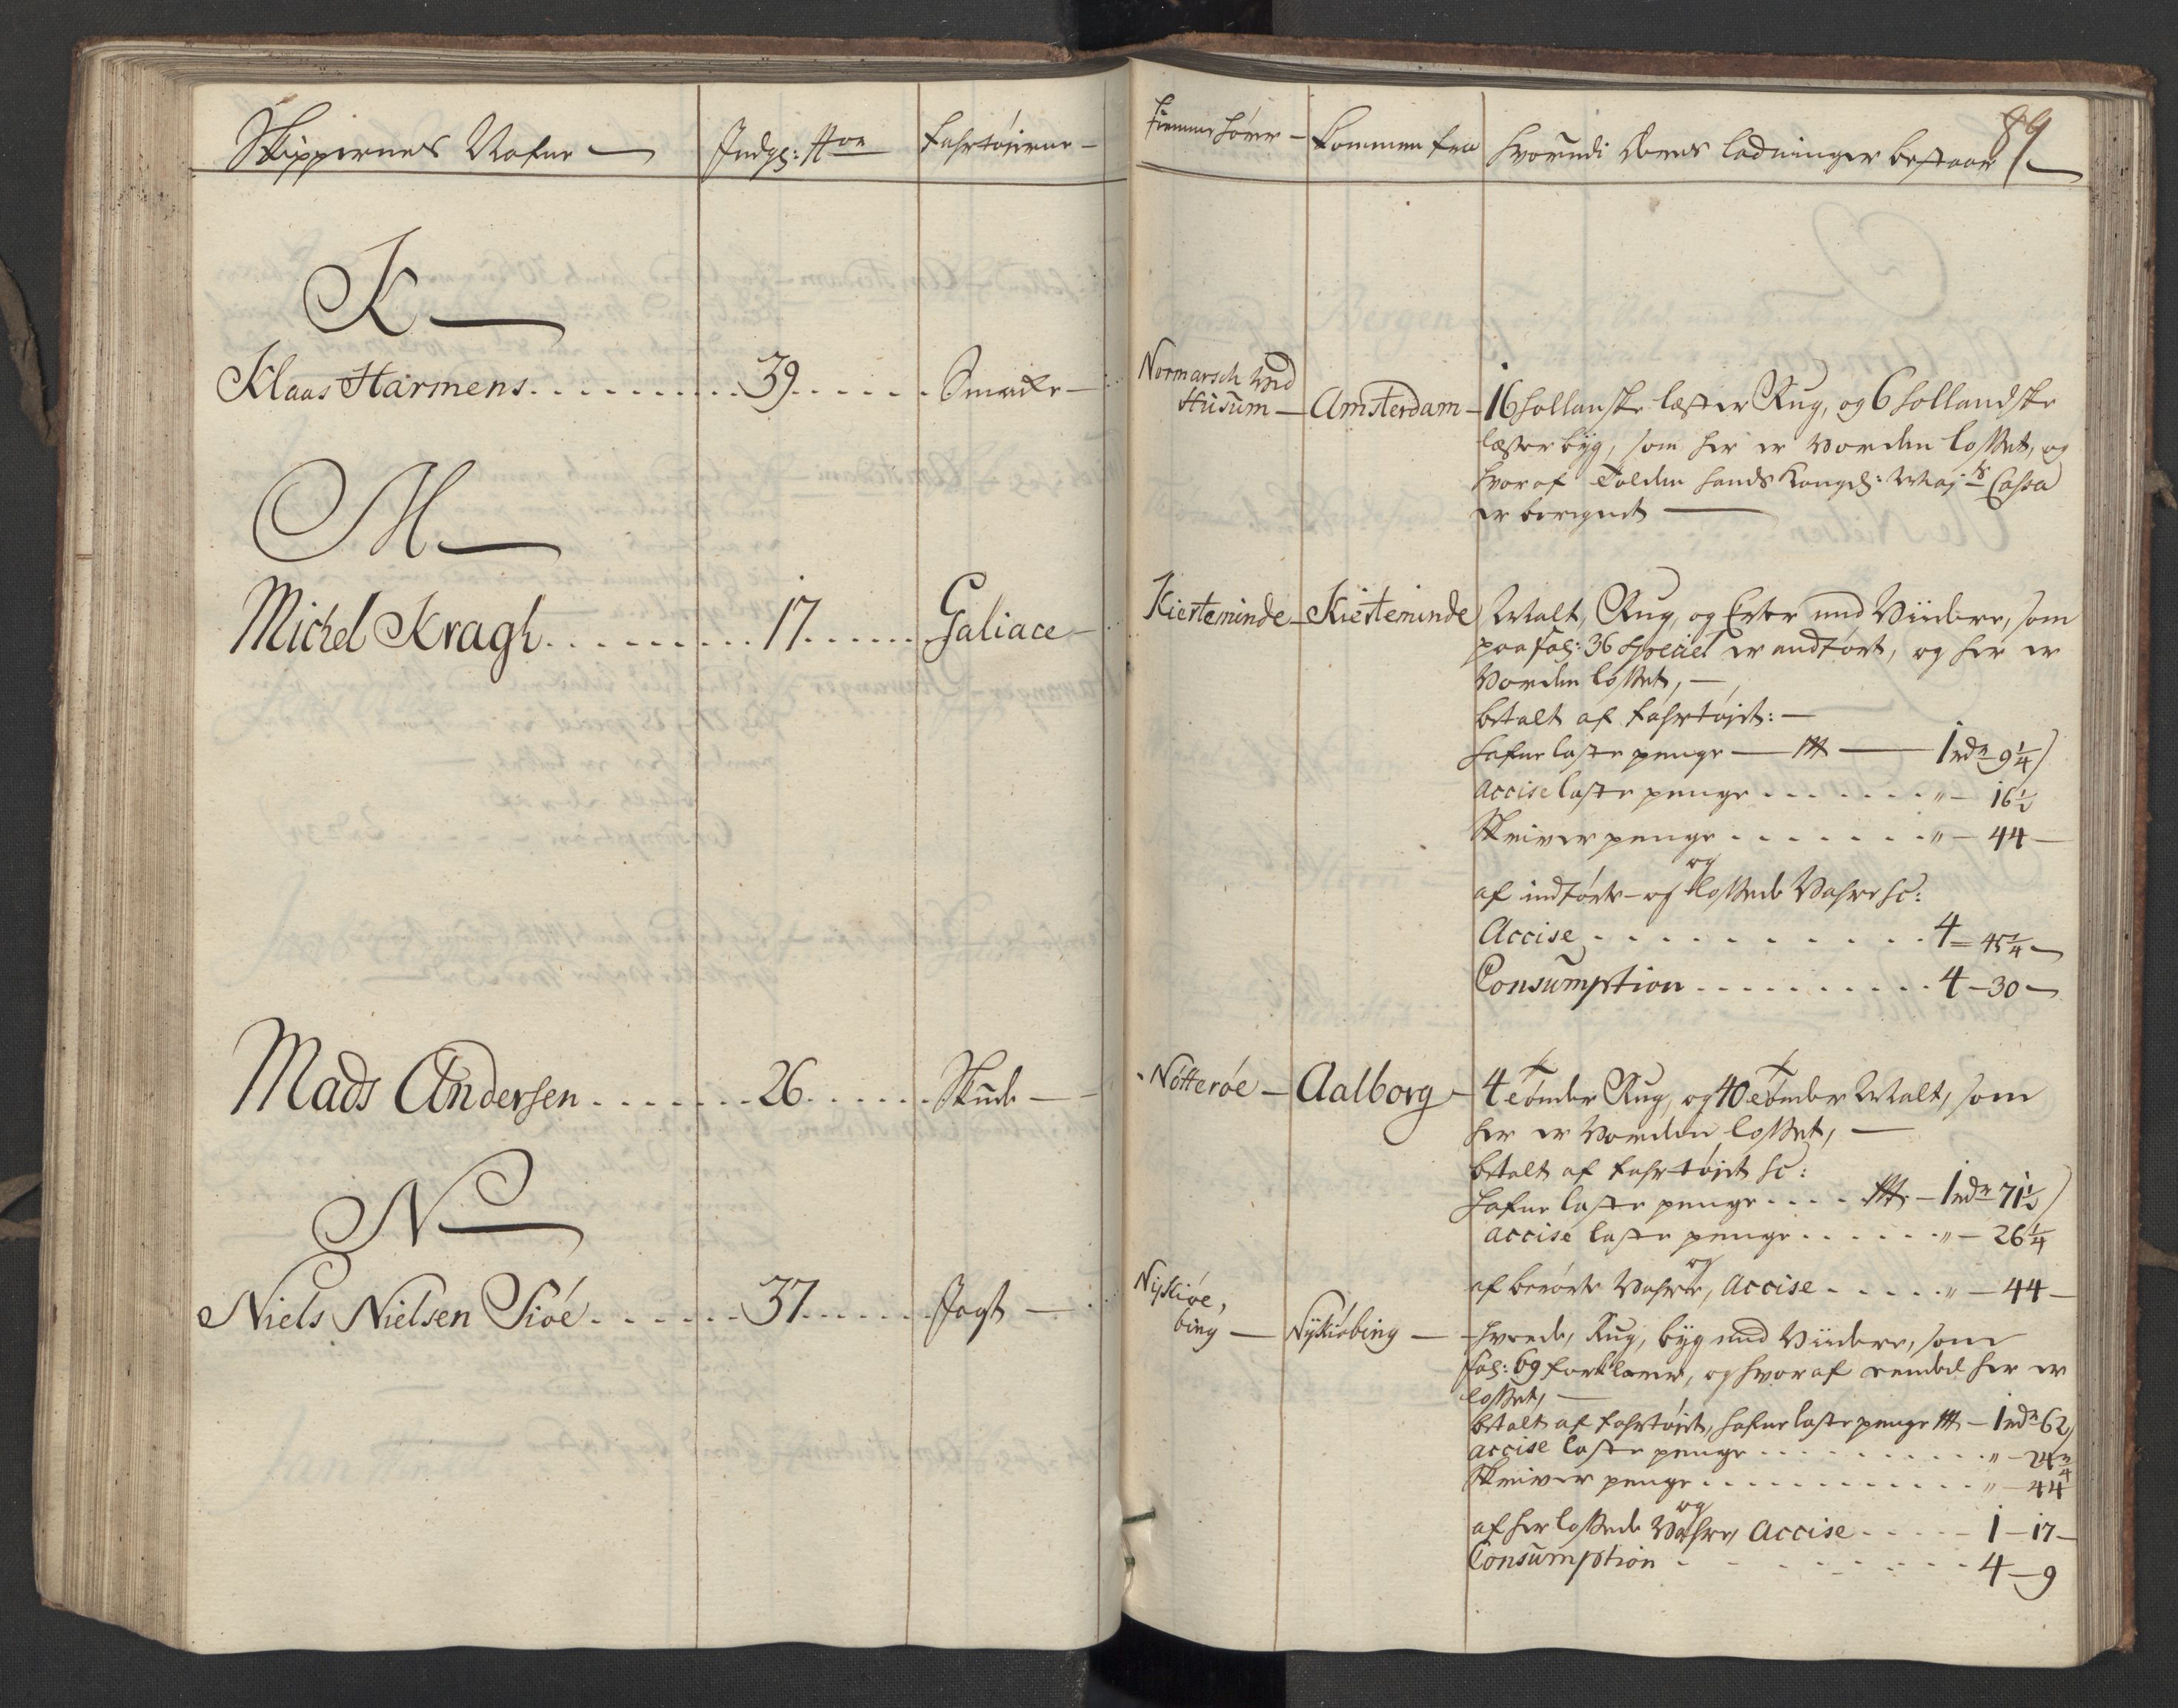 Skippernes Nafne
Indg: No
Fahrtøierne
hiemmehörer
kommen fra
hvorudi deres ladninger bestaar
89
K
Klaas Harmens 39 Smacke
Normarsch ved
Husum
Amsterdam
16 hollanske læster Rug, og 6 hollandske
læster byg, som her er vorden losset, og
hvoraf Tolden hands Kongel: Mayts Cassa
er beregnet
M
Michel Kragh 17 Galiace
Kierteminde
Kierteminde
Malt, Rug, og Erter med Viidere, som
paa fol: 36 Speciel er andført, og her er
vorden losset,
betalt af fahrtøjet:
hafne laste penge 1 rdr 9 1/4
accise laste penge " 16 1/2
Skriver penge " 44
af indførte og lossede Vahre sc:
Accise 4 45 1/4
Consumption 4 30
Mads Andersen 26 Skude
Nötteröe
Aalborg
4 tönder Rug, og 40 tönder Malt, som
her er vorden losset,
betalt af fahrtøjet sc:
hafne laste penge 1 rdr 71 1/2
accise laste penge " 26 1/4
af berörte Vahre, accise " 44
N
Niels Nielsen Siöe 37 Jagt
Nyekiöe,
bing
Nykiöbing
hvede, Rug, byg med Viidere, som
fol: 69 forklarer, og hvoraf eendeel her er
losset,
betalt af fahrtøjet, hafne laste penge 1 rdr 62
accise laste penge " 24 3/4
Skriver penge " 44
af her lossede Vahre, Accise 1 17
Consumption 4 9